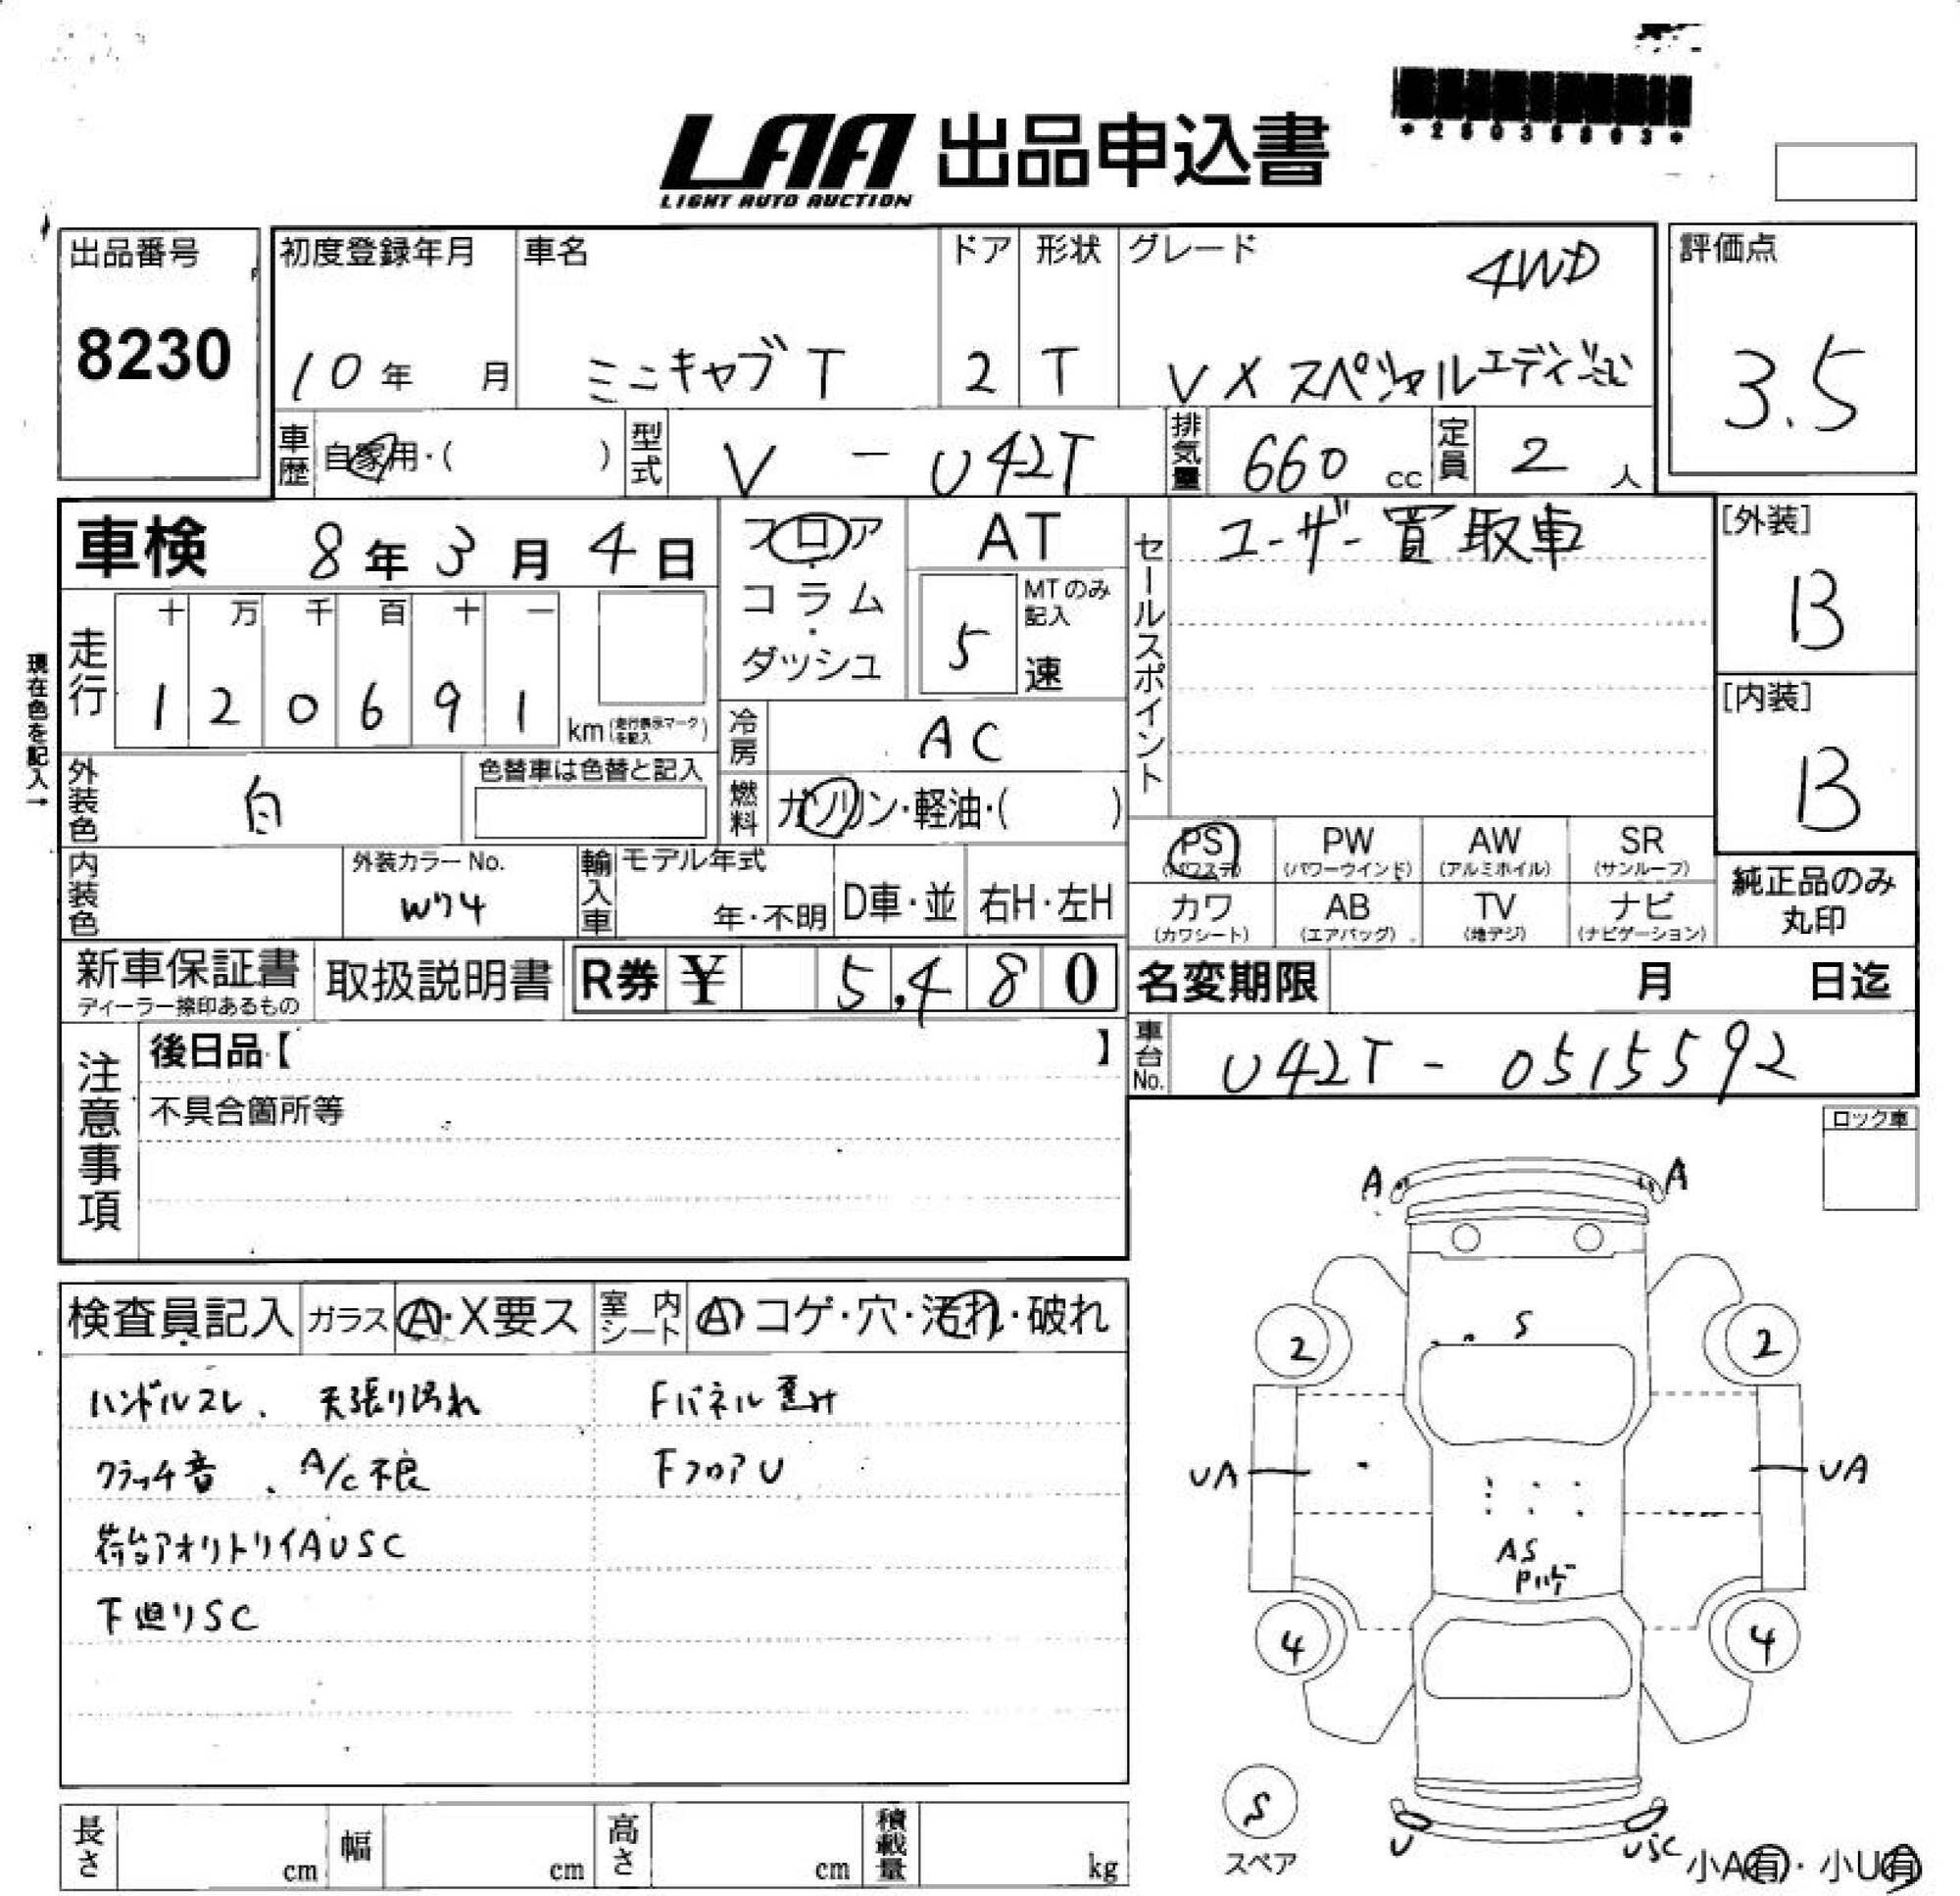 LAA 出品申込書
LIGHT AUTO AUCTION
出品番号
8230
初度登録年月
10年 月
車名
ミニキャブT
ドア
2
形状
T
グレード
4WD
VXスペシャルエディション
評価点
3.5
車歴
自家用・( )
型式
V - U42T
排気量
660 cc
定員
2 人
車検 8年3月4日
フロア・コラム・ダッシュ
AT
MTのみ記入
5 速
セールスポイント
ユーザー買取車
[外装]
B
[内装]
B
現在色を記入→
走行
十 万 千 百 十 一
1 2 0 6 9 1 km (走行表示マークを記入)
冷房
AC
外装色
白
色替車は色替と記入
燃料
ガソリン・軽油・( )
PS (パワステ)
PW (パワーウインド)
AW (アルミホイル)
SR (サンルーフ)
カワ (カワシート)
AB (エアバッグ)
TV (地デジ)
ナビ (ナビゲーション)
純正品のみ丸印
内装色
外装カラーNo.
W74
輸入車
モデル年式
年・不明
D車・並
右H・左H
新車保証書
ディーラー捺印あるもの
取扱説明書
R券 ¥ 5,480
名変期限 月 日迄
車台No.
U42T - 0515592
注意事項
後日品【 】
不具合箇所等
ロック車
検査員記入
ガラス
A・X要ス
室内シート
A コゲ・穴・汚れ・破れ
ハンドルスレ、天張り汚れ
クラッチ音、A/C不良
荷台アオリトリイAUSC
下廻りSC
Fパネル歪み
FフロアU
A A
S
2 2
UA UA
AS
4 4
S
スペア
U USC
小A有・小U有
長さ cm
幅 cm
高さ cm
積載量 kg